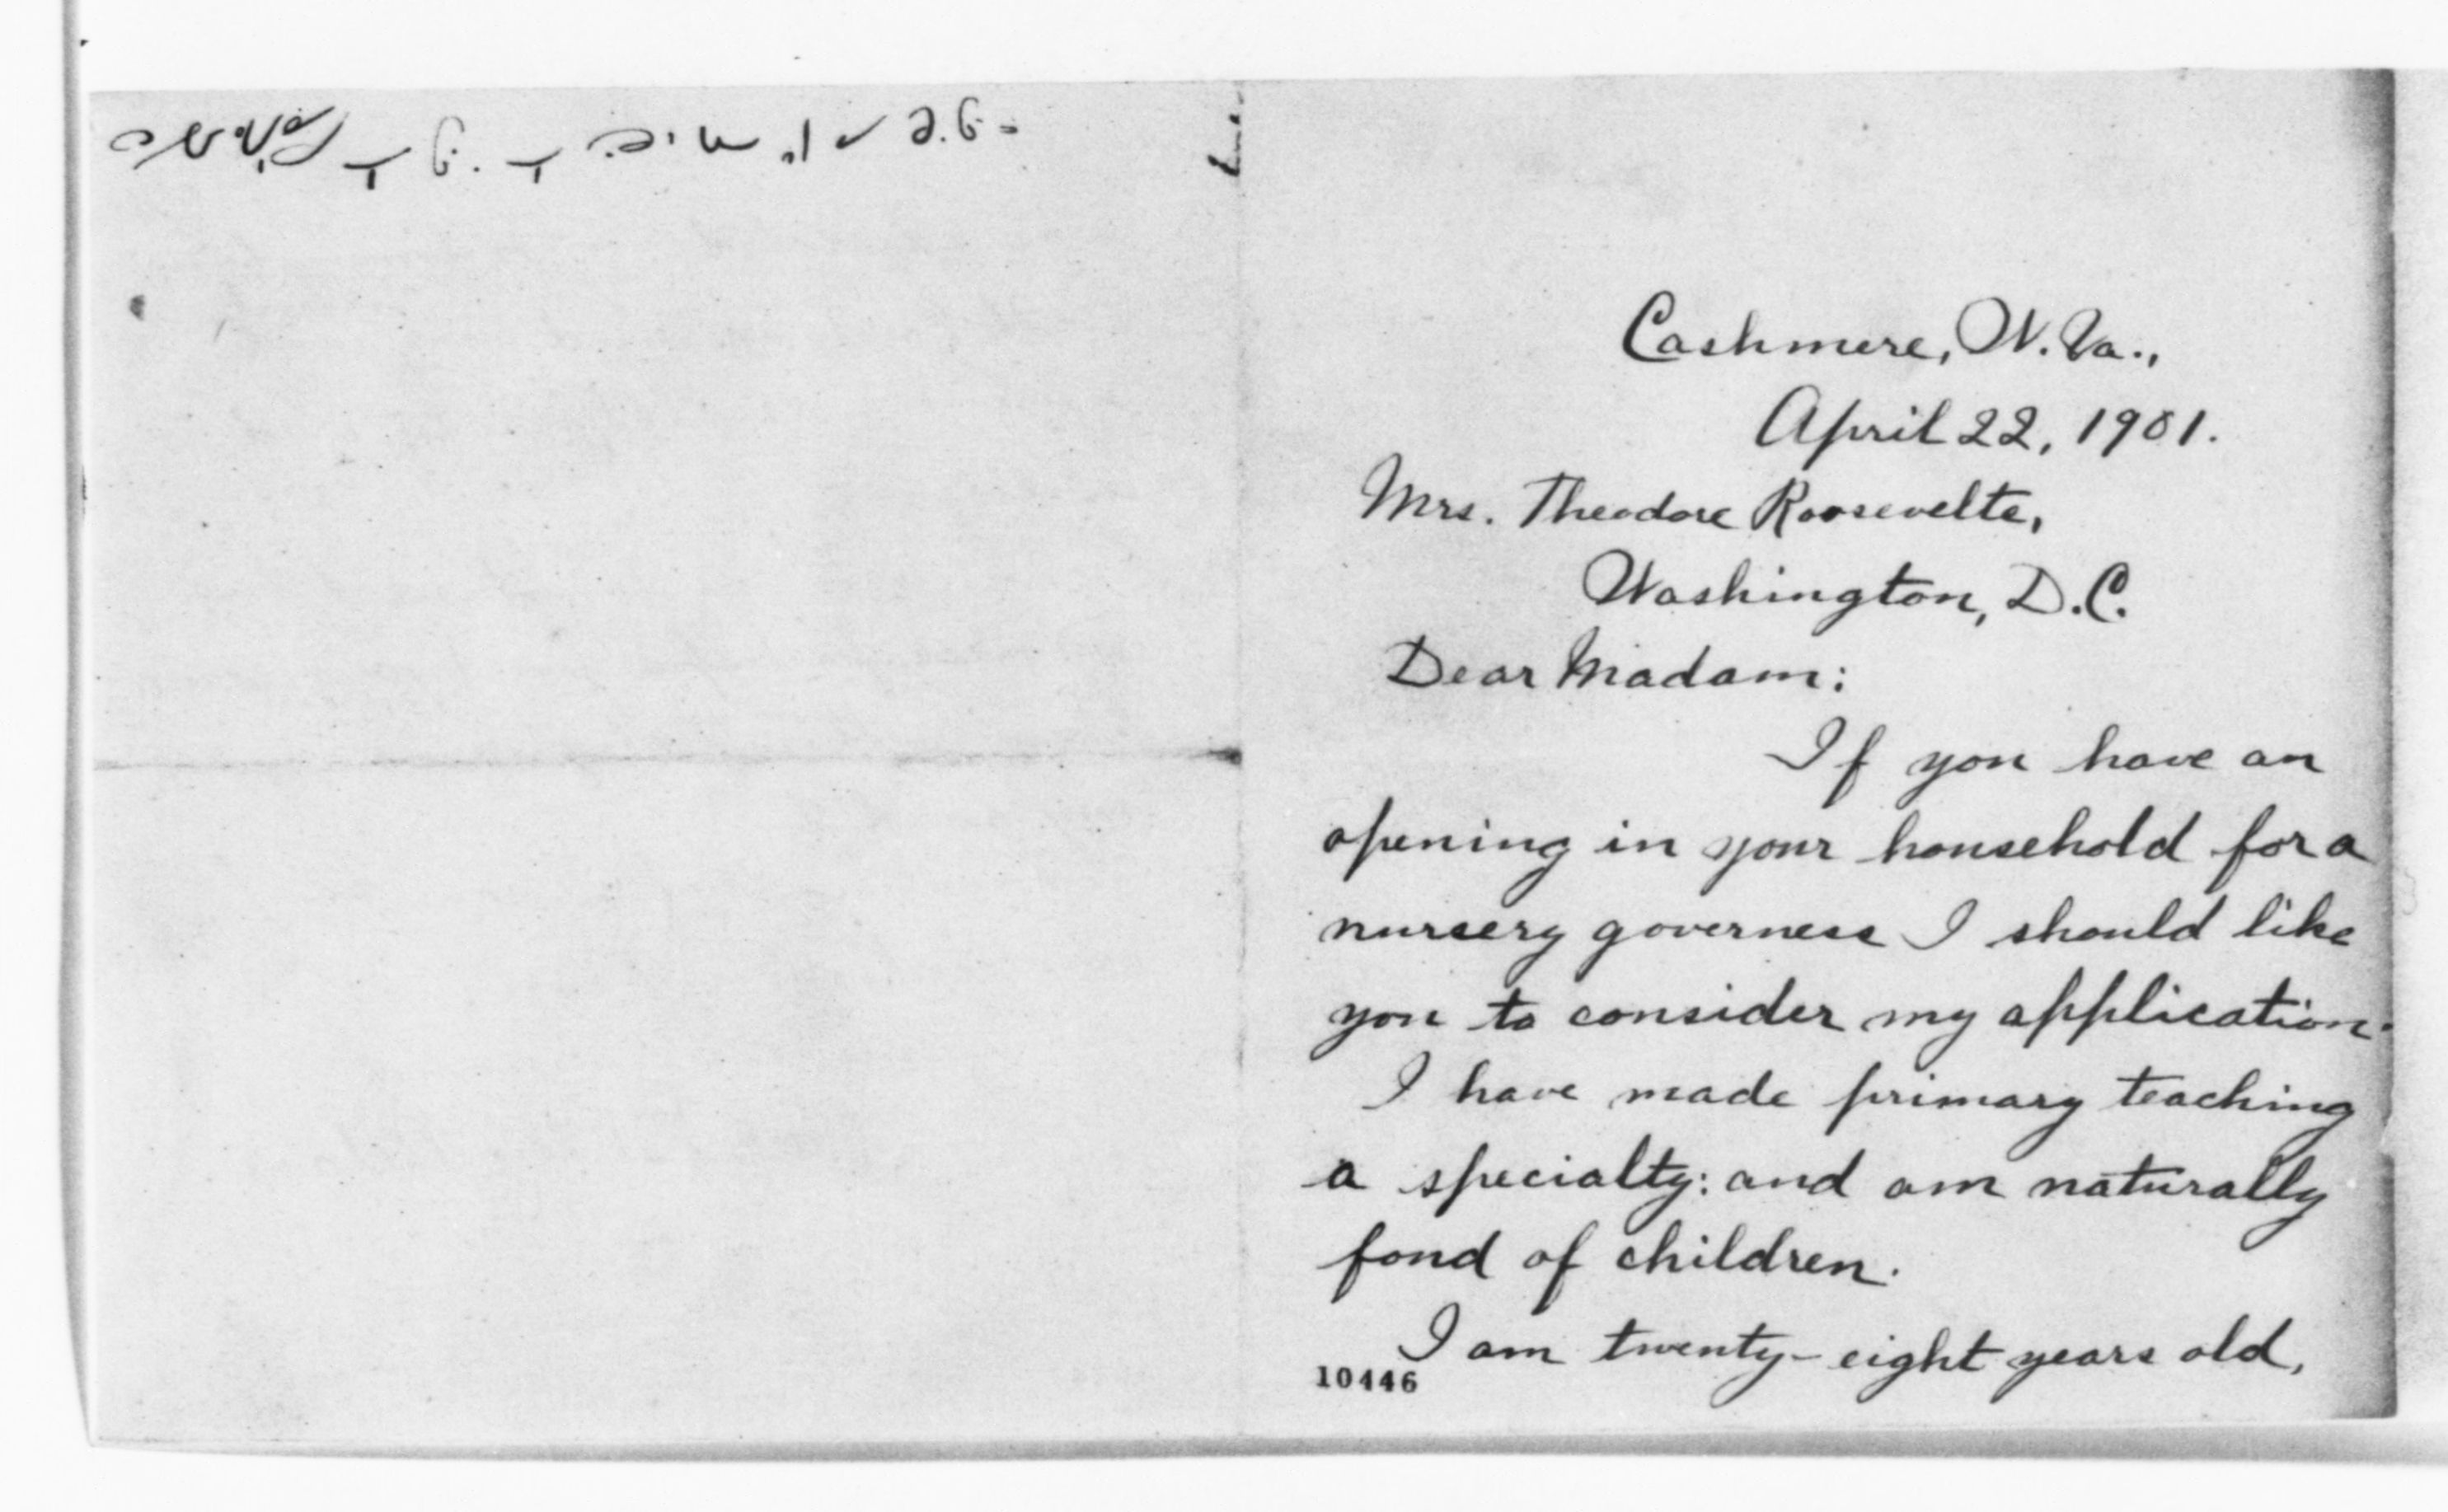 Cashmere, W. Va.,
April 22, 1901.
Mrs. Theodore Roosevelte,
Washington, D.C.
Dear Madam:
If you have an
opening in your household for a
nursery governess I should like
you to consider my application.
I have made primary teaching
a specialty: and am naturally
fond of children.
I am twenty-eight years old,
10446